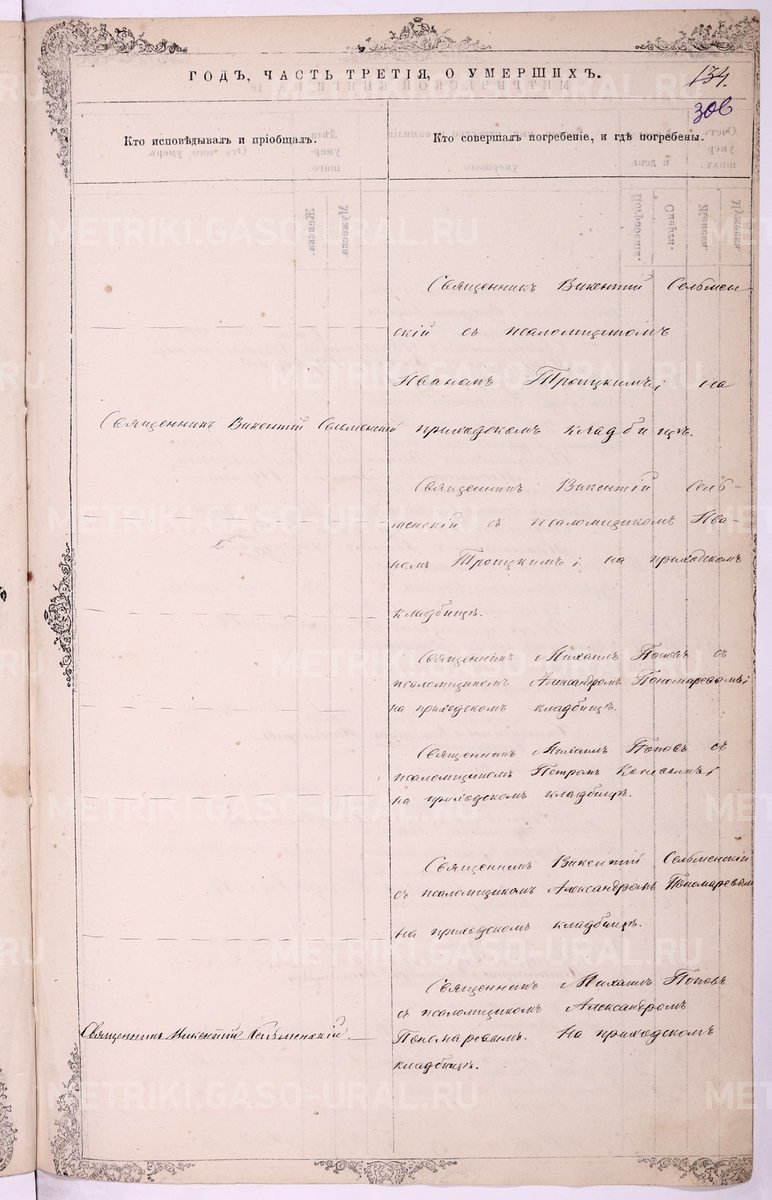 ГОДЪ, ЧАСТЬ ТРЕТІЯ, О УМЕРШИХЪ.
134.
306
Кто исповѣдывалъ и пріобщалъ.
Кто совершалъ погребеніе, и гдѣ погребены.
Священникъ Викентій Сельмен-
скій съ псаломщикомъ
Иваномъ Троицкимъ; на
Священникъ Викентій Сельменскій
приходскомъ кладбищѣ.
Священникъ Викентій Сель-
менскій съ псаломщикомъ Ива-
номъ Троицкимъ; на приходскомъ
кладбищѣ.
Священникъ Михаилъ Поповъ съ
псаломщикомъ Александромъ Пономаревымъ;
на приходскомъ кладбищѣ.
Священникъ Михаилъ Поповъ съ
псаломщикомъ Петромъ
на приходскомъ кладбищѣ.
Священникъ Викентій Сельменскій
съ псаломщикомъ Александромъ Пономаревымъ
на приходскомъ кладбищѣ.
Священникъ Михаилъ Поповъ
съ псаломщикомъ Александромъ
Священникъ Викентій Сельменскій
Пономаревымъ. На приходскомъ
кладбищѣ.
METRIKI.GASO-URAL.RU